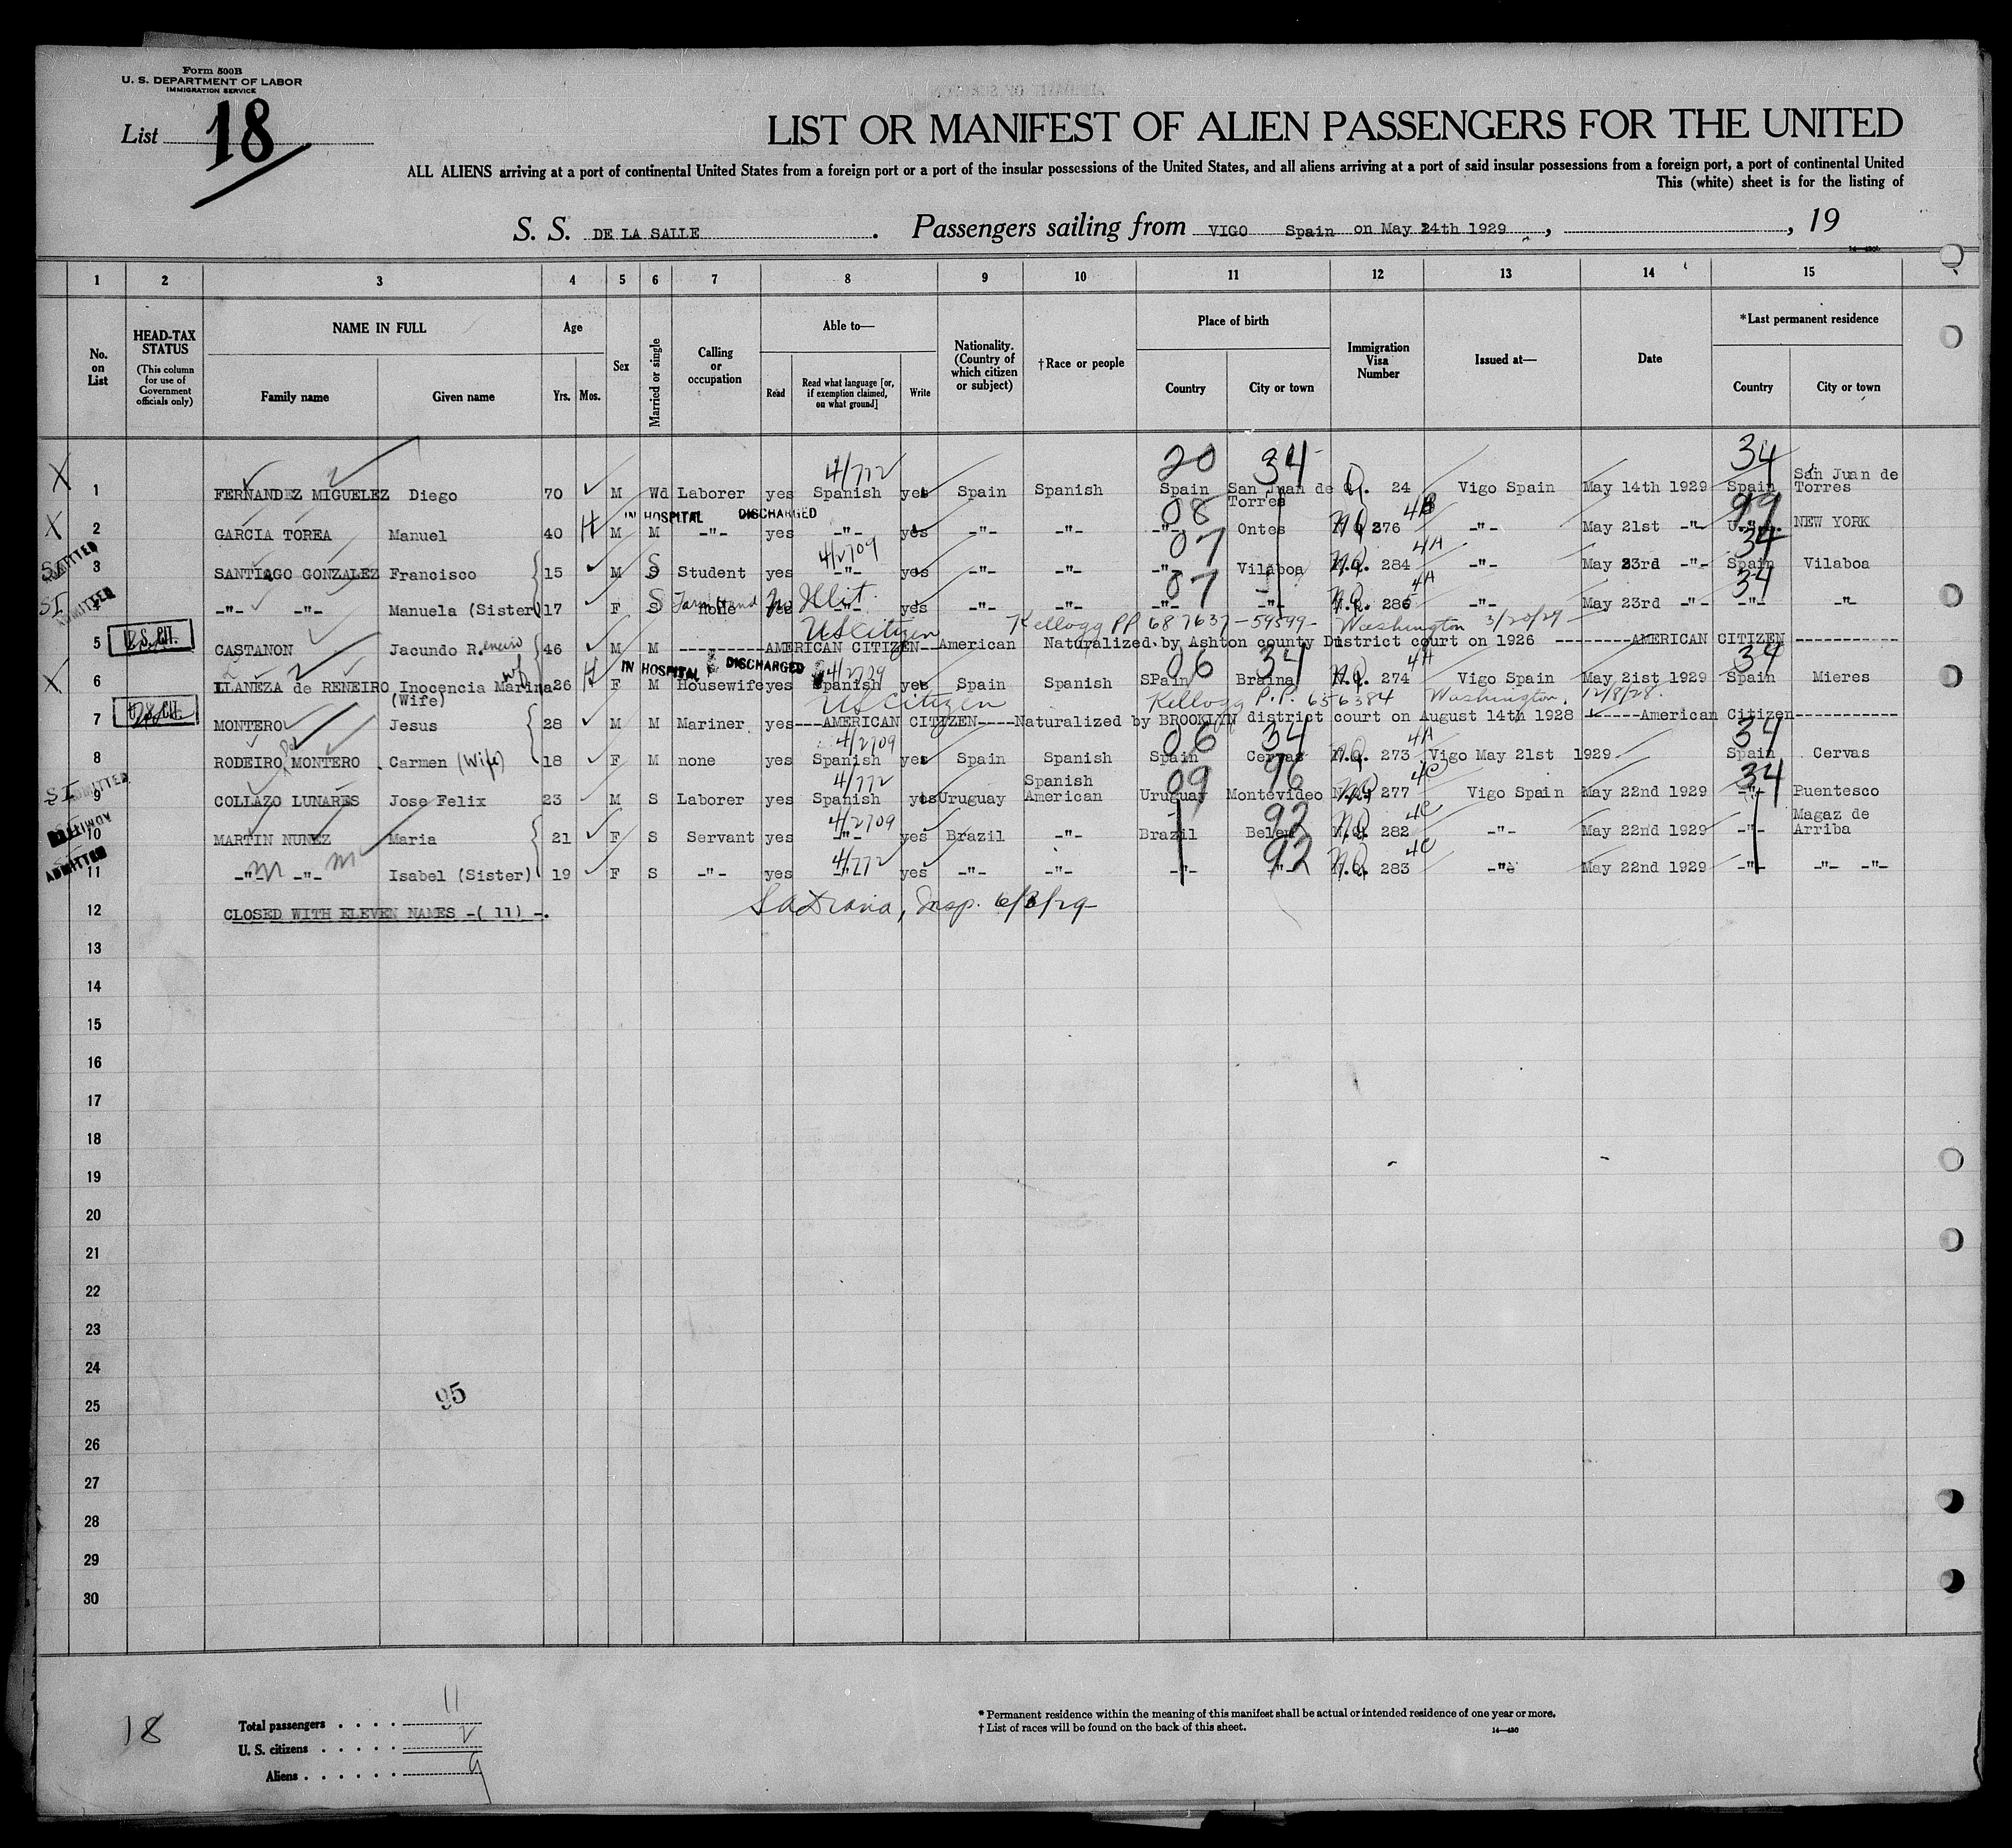 Form 500B
U. S. DEPARTMENT OF LABOR
IMMIGRATION SERVICE
List 18
LIST OR MANIFEST OF ALIEN PASSENGERS FOR THE UNITED
ALL ALIENS arriving at a port of continental United States from a foreign port or a port of the insular possessions of the United States, and all aliens arriving at a port of said insular possessions from a foreign port, a port of continental United
This (white) sheet is for the listing of
S. S. DE LA SALLE. Passengers sailing from VIGO Spain on May 24th 1929, , 19
1 2 3 4 5 6 7 8 9 10 11 12 13 14 15
No. on List
HEAD-TAX STATUS
(This column for use of Government officials only)
NAME IN FULL
Family name Given name
Age
Yrs. Mos.
Sex
Married or single
Calling or occupation
Able to—
Read Read what language [or, if exemption claimed, on what ground] Write
Nationality. (Country of which citizen or subject)
†Race or people
Place of birth
Country City or town
Immigration Visa Number
Issued at—
Date
*Last permanent residence
Country City or town
4/772 20 34 34
X 1 FERNANDEZ MIGUELEZ Diego 70 M Wd Laborer yes Spanish yes Spain Spanish Spain San Juan de Torres Q. 24 Vigo Spain May 14th 1929 Spain San Juan de Torres
IN HOSPITAL DISCHARGED 08 4B 99
X 2 GARCIA TOREA Manuel 40 H M M -"- yes -"- yes -"- -"- -"- Ontes N.Q. 276 -"- May 21st -"- NEW YORK
ADMITTED 4/2709 07 4A 34
SI 3 SANTIAGO GONZALEZ Francisco 15 M S Student yes -"- yes -"- -"- -"- Vilaboa N.Q. 284 -"- May 23rd -"- Spain Vilaboa
ADMITTED No Illit. 07 4A 34
SI -"- -"- Manuela (Sister) 17 F S none yes -"- yes -"- -"- -"- -"- N.Q. 286 -"- May 23rd -"- -"- -"-
US Citizen Kellogg PP 687637-59599- Washington 3/20/29-
5 U.S. CIT. CASTANON Jacundo R.eneiro 46 M M AMERICAN CITIZEN--American Naturalized by Ashton county District court on 1926 ---------AMERICAN CITIZEN -------------
IN HOSPITAL DISCHARGED 4/2709 06 34 4A 34
X 6 LLANEZA de RENEIRO Inocencia Marina (Wife) wf 26 H F M Housewife yes Spanish yes Spain Spanish SPain Braina N.Q. 274 Vigo Spain May 21st 1929 Spain Mieres
US Citizen Kellogg P.P. 656384 Washington. 12/8/28.
7 U.S. CIT. MONTERO Jesus 28 M M Mariner yes----AMERICAN CITIZEN----Naturalized by BROOKLYN district court on August 14th 1928 -----American Citizen------------
4/2709 06 34 4A 34
8 RODEIRO de MONTERO Carmen (Wife) 18 F M none yes Spanish yes Spain Spanish Spain Cervas N.Q. 273 Vigo May 21st 1929 Spain Cervas
ADMITTED 4/772 09 96 4C 34
SI 9 COLLAZO LUNARES Jose Felix 23 M S Laborer yes Spanish yes Uruguay Spanish American Uruguay Montevideo N.Q. 277 Vigo Spain May 22nd 1929 -"- Puentesco
ADMITTED 4/2709 92 4C
10 MARTIN NUNEZ Maria 21 F S Servant yes -"- yes Brazil -"- Brazil Belen N.Q. 282 -"- May 22nd 1929 -"- Magaz de Arriba
ADMITTED 4/772 92 4C
11 -"- -"- Isabel (Sister) 19 F S -"- yes -"- yes -"- -"- -"- -"- N.Q. 283 -"- May 22nd 1929 -"- -"- -"-
12 CLOSED WITH ELEVEN NAMES -( 11) -. Insp. 6/3/29
13
14
15
16
17
18
19
20
21
22
23
24
25 95
26
27
28
29
30
18
Total passengers . . . . 11
U. S. citizens . . . . . 2
Aliens . . . . . . 9
* Permanent residence within the meaning of this manifest shall be actual or intended residence of one year or more.
† List of races will be found on the back of this sheet.
14—430